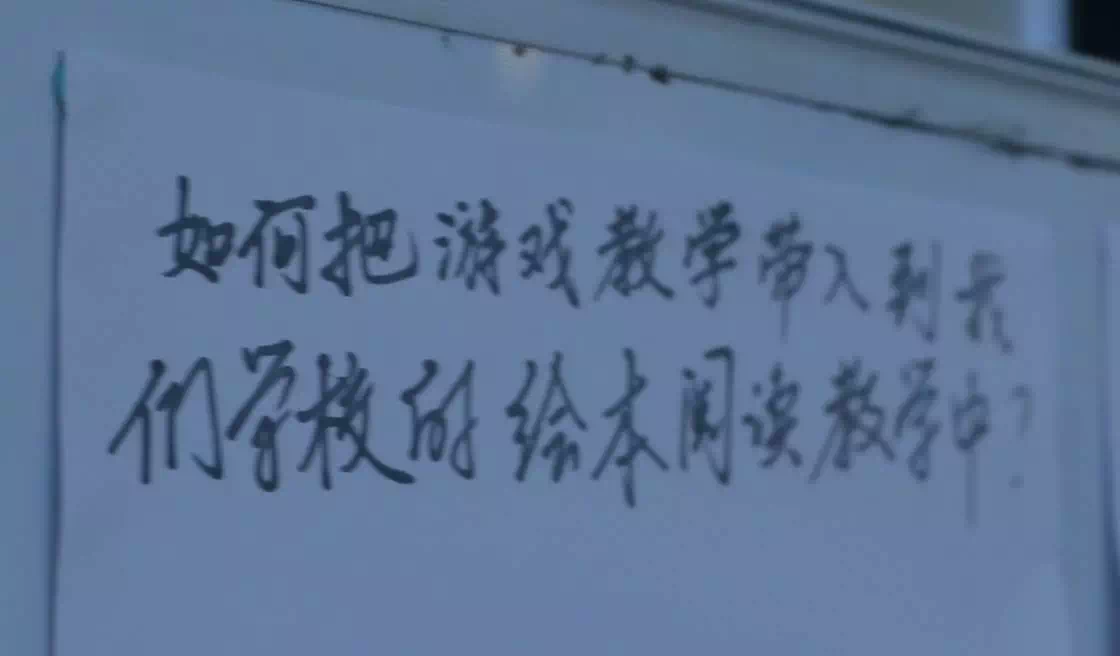 如何把游戏教学带入到我
们学校的绘本阅读教学中?